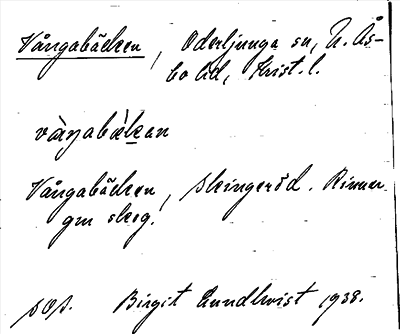 Vångabäcken, Oderljunga sn, N. Ås-
bo hd, Krist. l.
vàŋabæ̀kan
Vångabäcken, Skingeröd. Rinner
gm skog.
sOs. Birgit Lundkvist 1938.